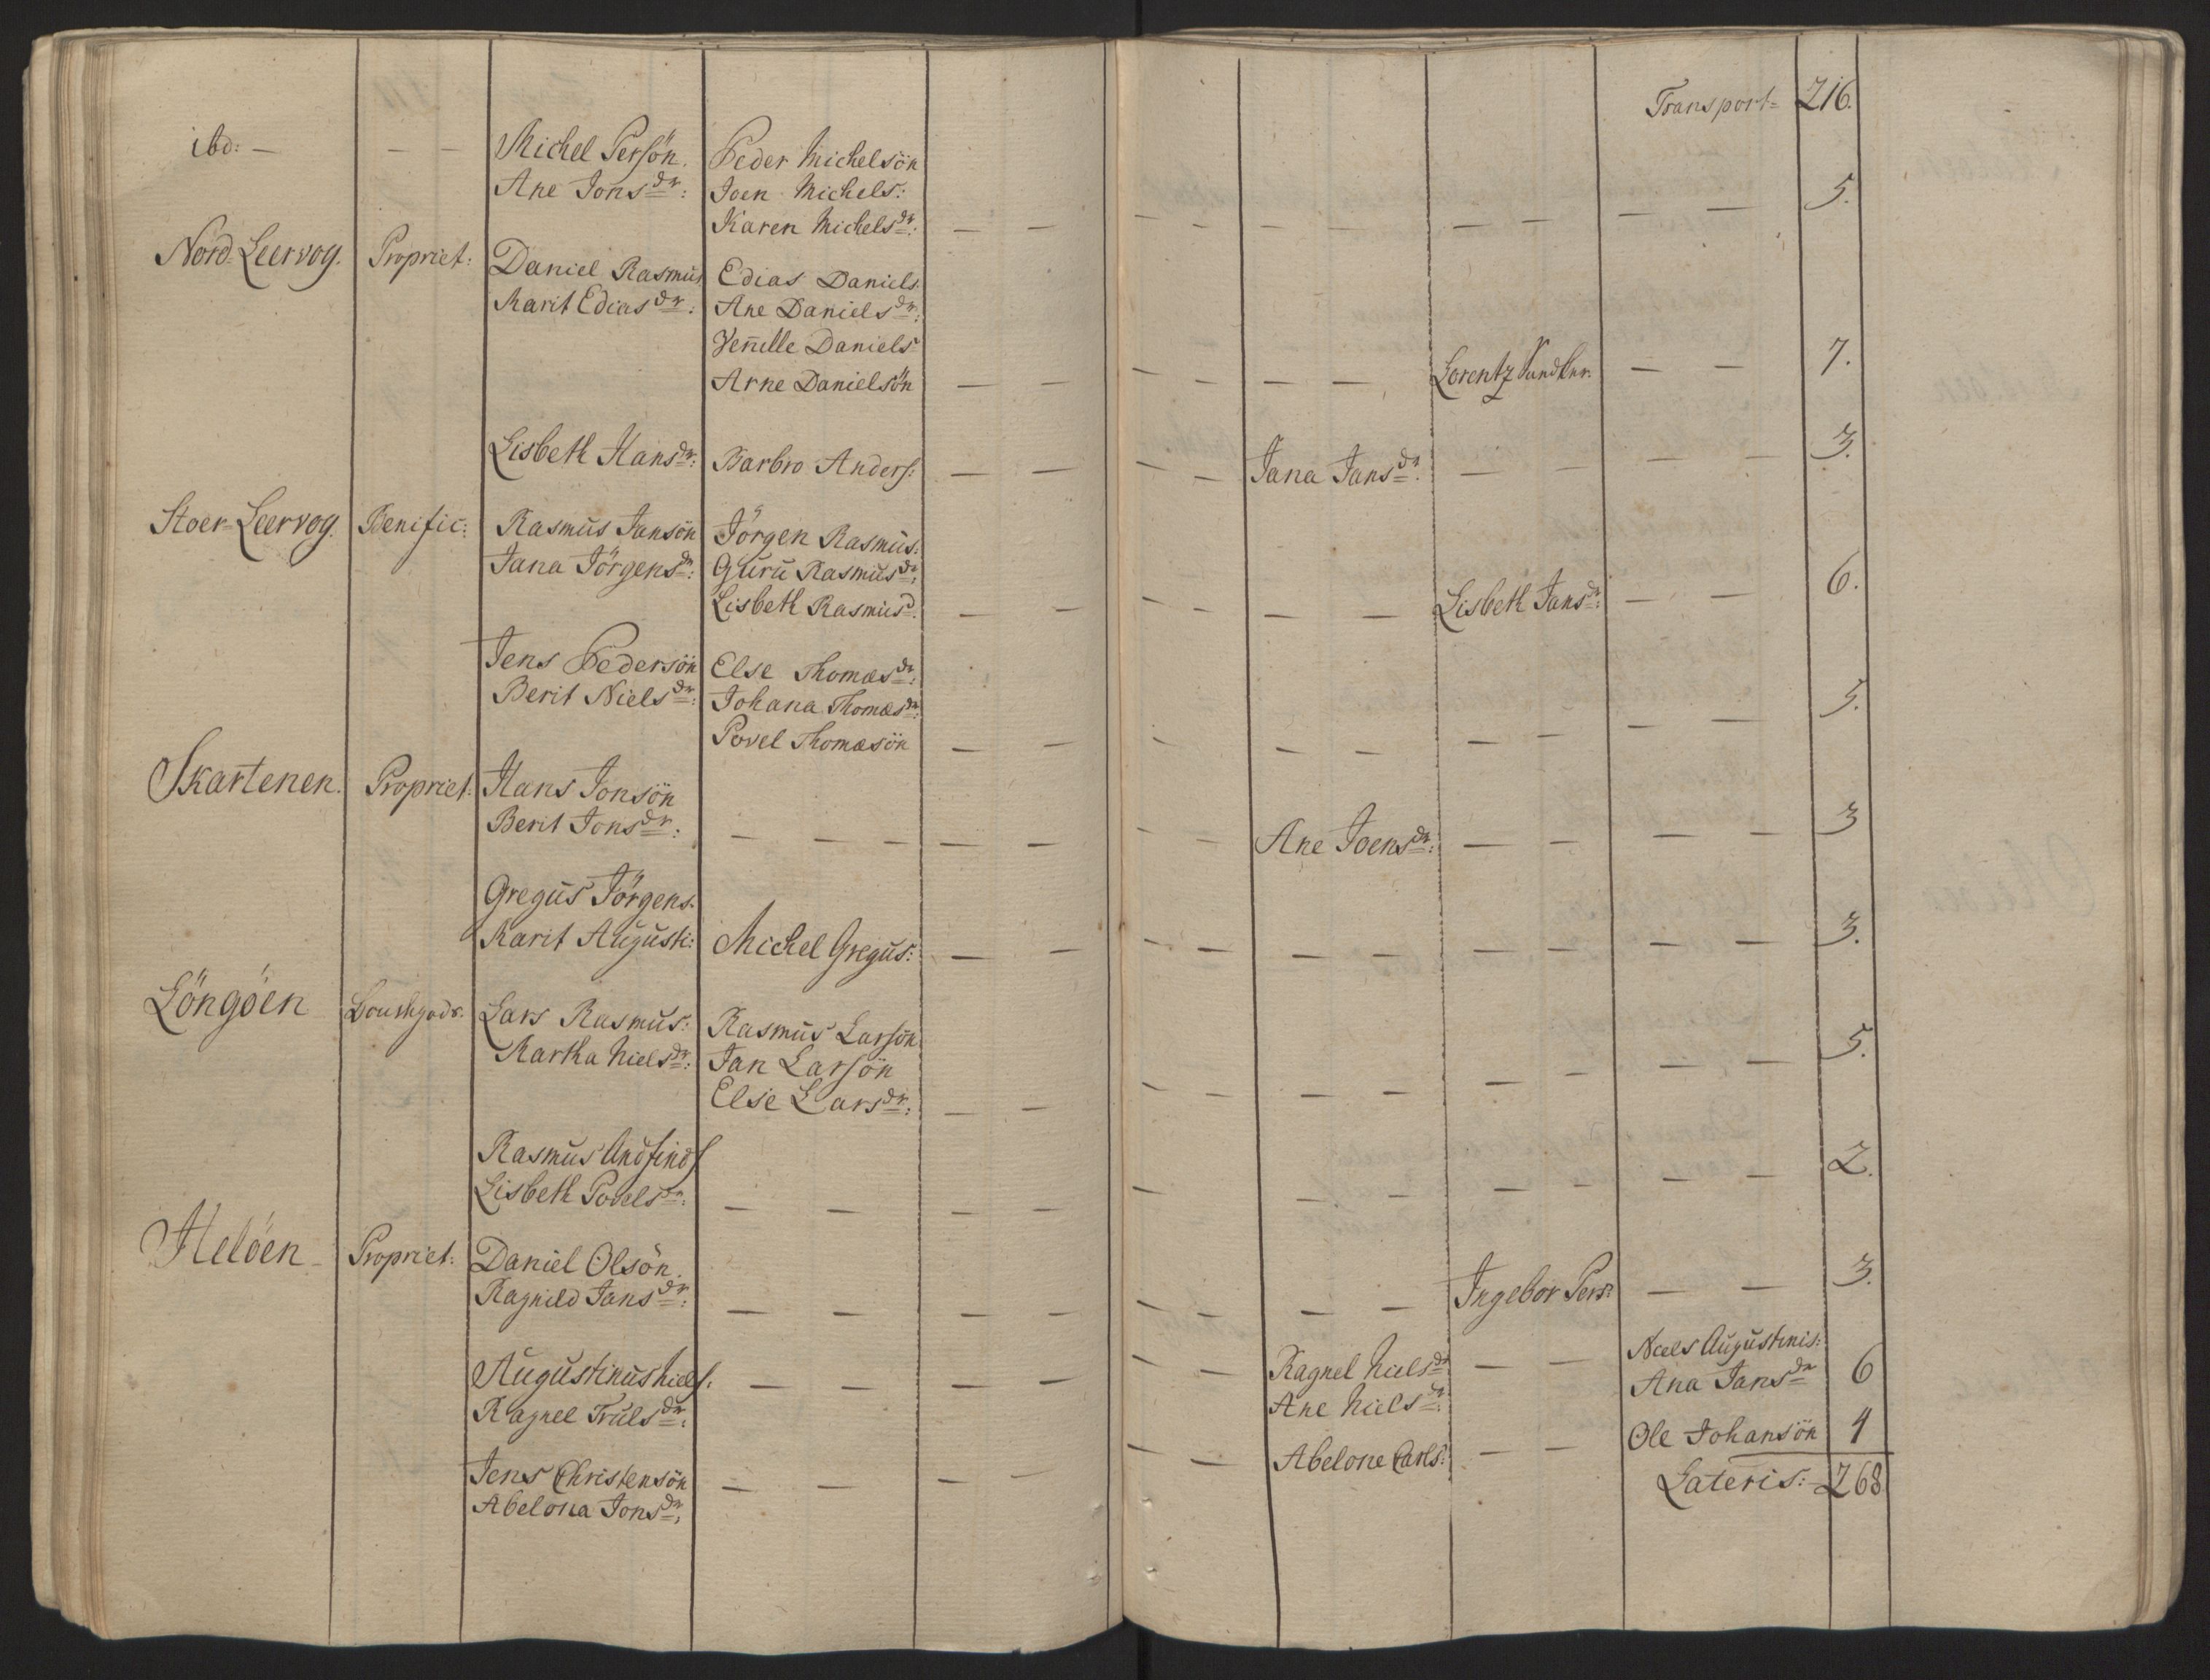 Transport= 216.
ibd: — — — Michel Persön. Peder Michelsön
Ane Jons dr: Joen Michels: 5.
Karen Michels dr: — — — — — — — — — —
Nord-Leervog. Propriet: Daniel Rasmus Edias Daniels.
Marit Edias dr: Ane Daniels dr:
Pernille Daniels
Arne Danielsön — — — — — — Lorentz — — 7.
Lisbeth Hans dr: Barbro Anders: — — — — Jana Jans dr. — — — — 3.
Stoer-Leervog. Benific: Rasmus Jansön Jörgen Rasmus:
Jana Jörgens dr: Guru Rasmus dr:
Lisbeth Rasmus d. — — — — — — Lisbeth Jans dr: — — 6.
Jens Pedersön Else Thomæs dr:
Berit Niels dr: Johana Thomæs dr: 5.
Povel Thomæsön — — — — — — — — —
Skartenen. Propriet: Hans Jonsön
Berit Jons dr: — — — — — — — Ane Joens dr: — — — — 3
Gregus Jörgens.
Karit Augusti: Michel Gregus: — — — — — — — — — — 3.
Löngöen Lars Rasmus: Rasmus Larsön
Martha Niels dr: Jan Larsön 5.
Else Lars dr: — — — — — — — — — —
Rasmus Andfinds
Lisbeth Povels dr: — — — — — — — — — — — 2.
Helöen — Propriet: Daniel Olsön.
Ragnild Jans dr: — — — — — — — — Ingebor Pers: — — 3.
Niels Augustinis:
Augustinus Niels: — — — — — — Ragnel Niels dr — — Ana Jans dr 6
Ragnel Truls dr: Ane Niels dr:
Jens Christensön — — — — — — Abelone Carls: — — Ole Johansön 4
Abelona Jons dr: Lateris: — 268